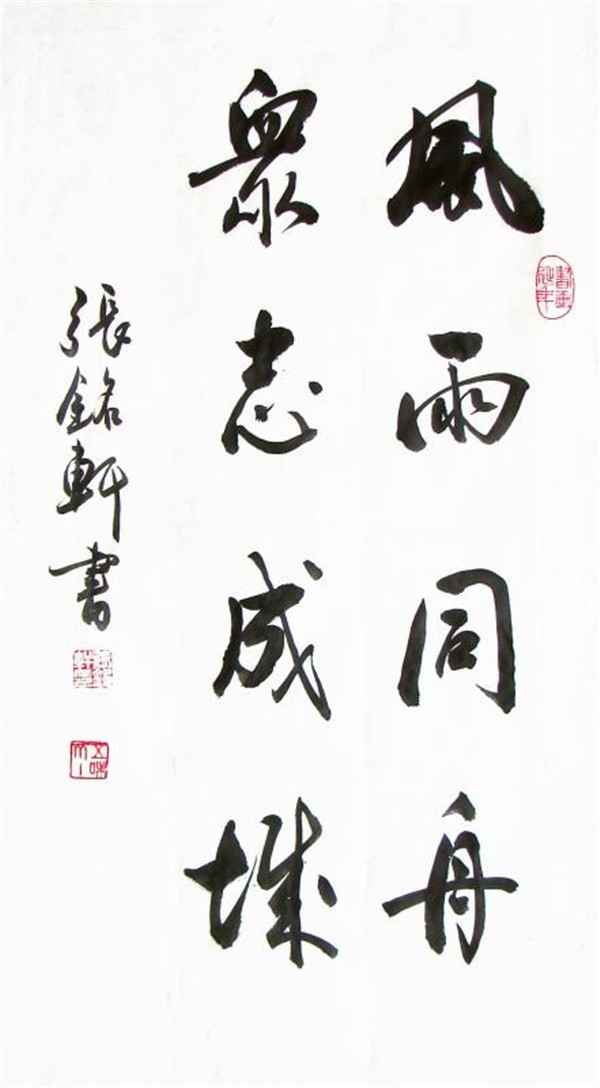 風雨同舟
衆志成城
張銘軒書